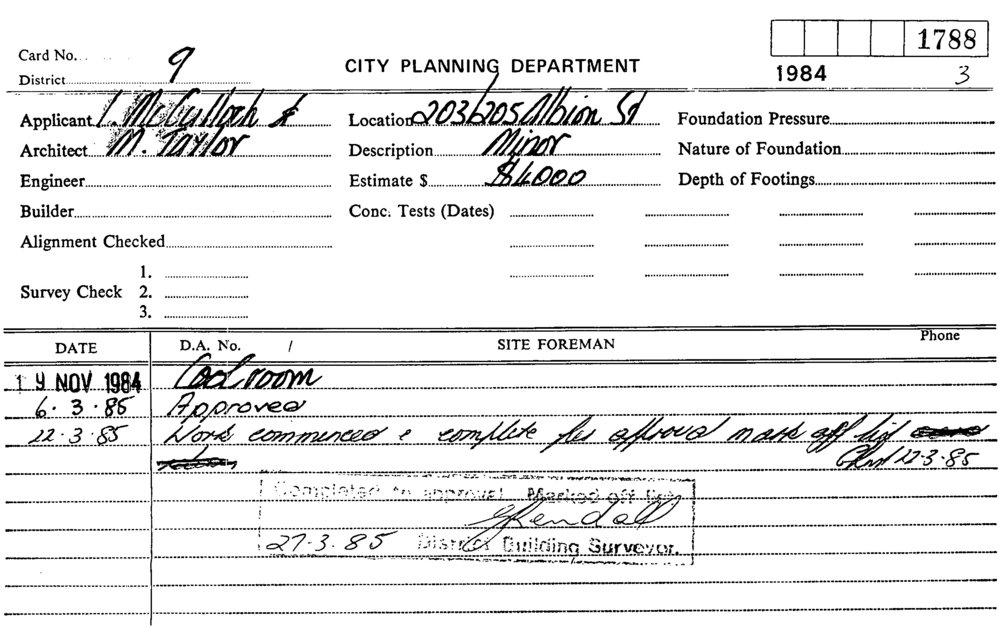 1788
Card No. 9 CITY PLANNING DEPARTMENT 1984 3
District
Applicant I. McCulloch & Location 203/205 Albion St Foundation Pressure
Architect M. Taylor Description Minor Nature of Foundation
Engineer Estimate $ $4,000 Depth of Footings
Builder Conc. Tests (Dates)
Alignment Checked
1.
Survey Check 2.
3.
DATE D.A. No. / SITE FOREMAN Phone
19 NOV 1984 Coolroom
6.3.85 Approved
22.3.85 Work commenced & complete per approval mark off list
22-3-85
Completed to approval. Marked off list
27-3.85 District Building Surveyor.